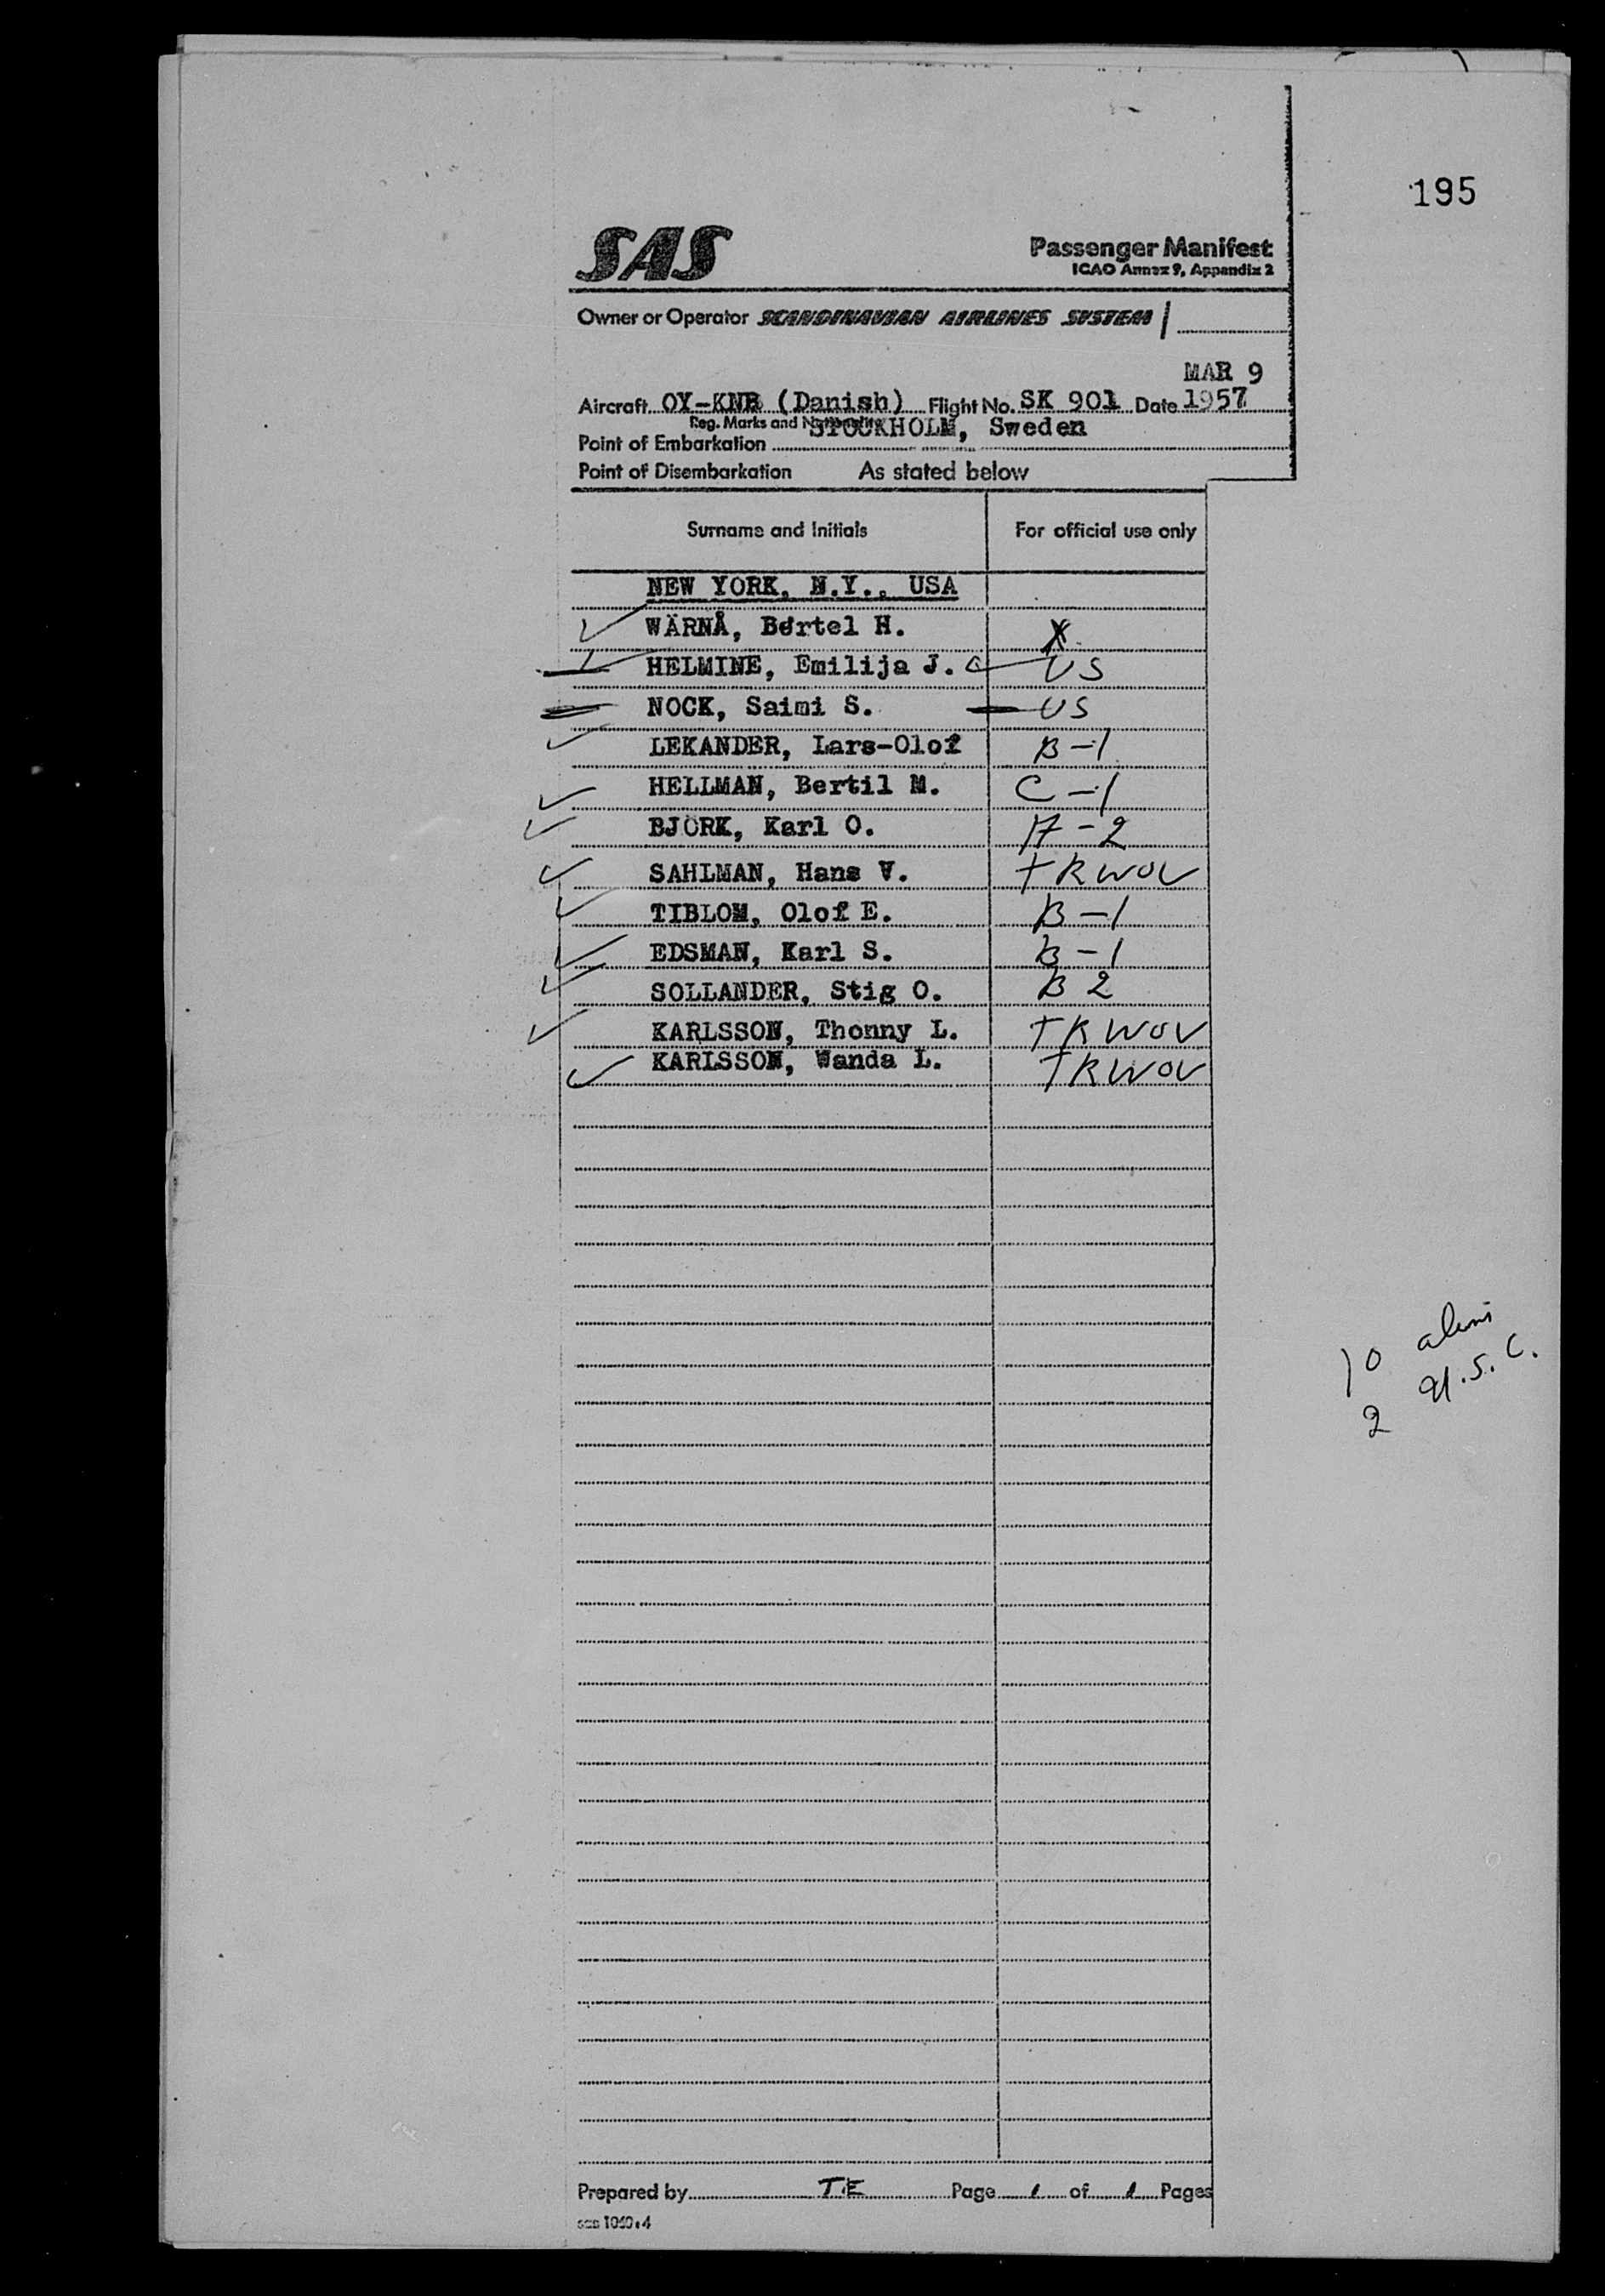 195
SAS
Passenger Manifest
ICAO Annex 9, Appendix 2
Owner or Operator SCANDINAVIAN AIRLINES SYSTEM
MAR 9
Aircraft OY-KNB (Danish) Flight No. SK 901 Date 1957
Reg. Marks and Nationality
Point of Embarkation STOCKHOLM, Sweden
Point of Disembarkation As stated below
Surname and Initials For official use only
NEW YORK, N.Y., USA
WÄRNÅ, Bertel H. X
HELMINE, Emilija J. US
NOCK, Saimi S. US
LEKANDER, Lars-Olof B-1
HELLMAN, Bertil M. C-1
BJÖRK, Karl O. A-2
SAHLMAN, Hans V. TRWOV
TIBLOM, Olof E. B-1
EDSMAN, Karl S. B-1
SOLLANDER, Stig O. B 2
KARLSSON, Thonny L. TRWOV
KARLSSON, Wanda L. TRWOV
10 aliens
2 U.S.C.
Prepared by T.E Page 1 of 1 Pages